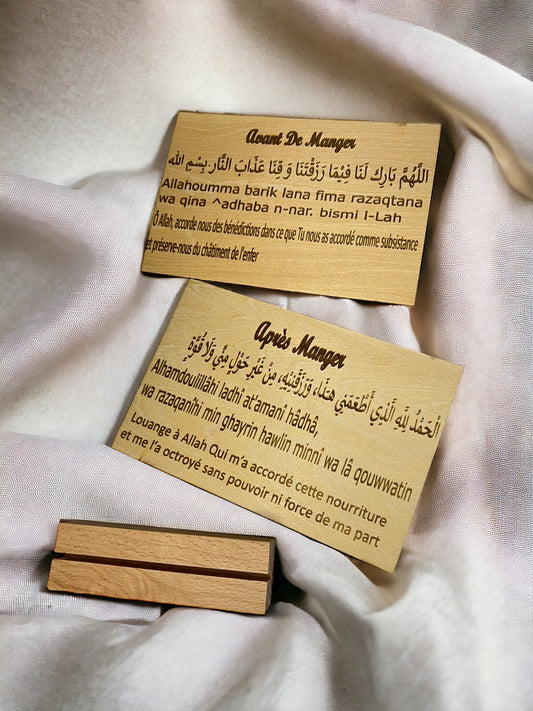 Avant De Manger
اللَّهُمَّ بَارِك لَنَا فِيْمَا رَزَقْتَنَا وَ قِنَا عَذَابَ النَّار. بِسْمِ الله
Allahoumma barik lana fima razaqtana
wa qina ^adhaba n-nar. bismi l-Lah
Ô Allah, accorde nous des bénédictions dans ce que Tu nous as accordé comme subsistance
et préserve-nous du châtiment de l'enfer
Après Manger
الْحَمْدُ لِلَّهِ الَّذِي أَطْعَمَنِي هَذَا، وَرَزَقَنِيْهِ، مِنْ غَيْرِ حَوْلٍ مِنِّي وَلَا قُوَّةٍ
Alhamdoulillâhi ladhî at'amanî hâdhâ,
wa razaqanîhi min ghayrin hawlin minnî wa lâ qouwwatin
Louange à Allah Qui m'a accordé cette nourriture
et me l'a octroyé sans pouvoir ni force de ma part